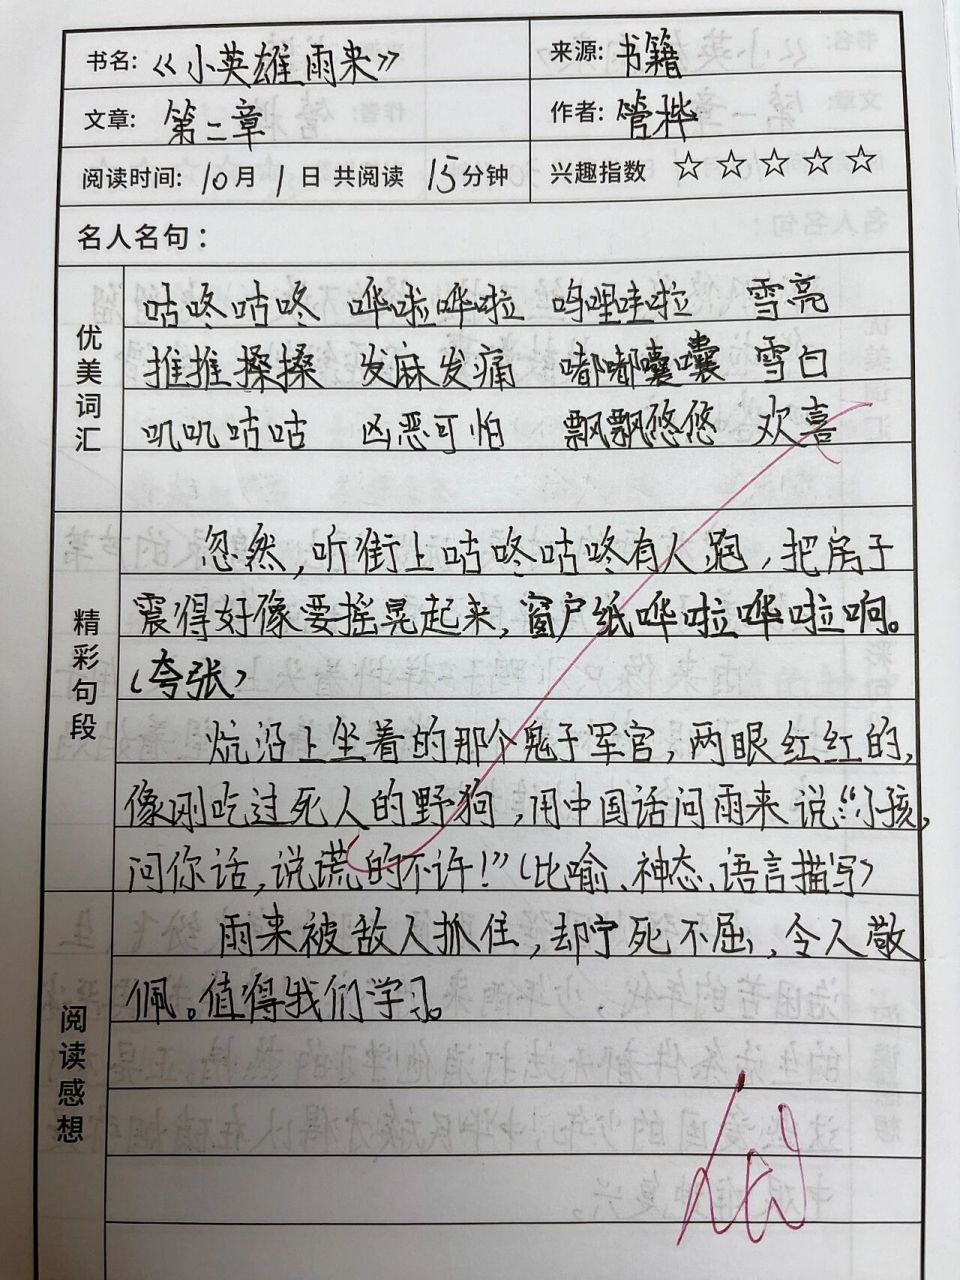 书名: 《小英雄雨来》 来源: 书籍
文章: 第二章 作者: 管桦
阅读时间: 10月1日 共阅读 15分钟 兴趣指数 ☆☆☆☆☆
名人名句:
优美词汇
咕咚咕咚 哗啦哗啦 呜哩哇啦 雪亮
推推搡搡 发麻发痛 嘟嘟囔囔 雪白
叽叽咕咕 凶恶可怕 飘飘悠悠 欢喜
精彩句段
忽然,听街上咕咚咕咚有人跑,把房子
震得好像要摇晃起来,窗户纸哗啦哗啦响。
(夸张)
炕沿上坐着的那个鬼子军官,两眼红红的,
像刚吃过死人的野狗,用中国话问雨来说:“小孩,
问你话,说谎的不许!”(比喻、神态、语言描写)
阅读感想
雨来被敌人抓住,却宁死不屈,令人敬
佩。值得我们学习。